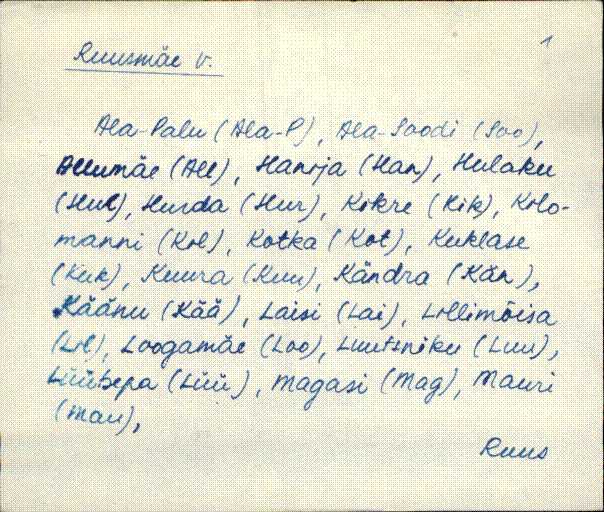 Ruusmäe v.
1
Ala-Palu (Ala-P), Ala-Soodi (Soo),
Allumäe (All), Hanija (Han), Hulaku
(Hul), Hurda (Hur), Kikre (Kik), Kolo-
manni (Kol), Kotka (Kot), Kuklase
(Kuk), Kuura (Kuu), Kändra (Kän),
Käänu (Kää), Laisi (Lai), Lillimõisa
(Lil), Loogamäe (Loo), Luutsniku (Luu),
Lüütsepa (Lüü), Magasi (Mag), Mauri
(Mau),
Ruus